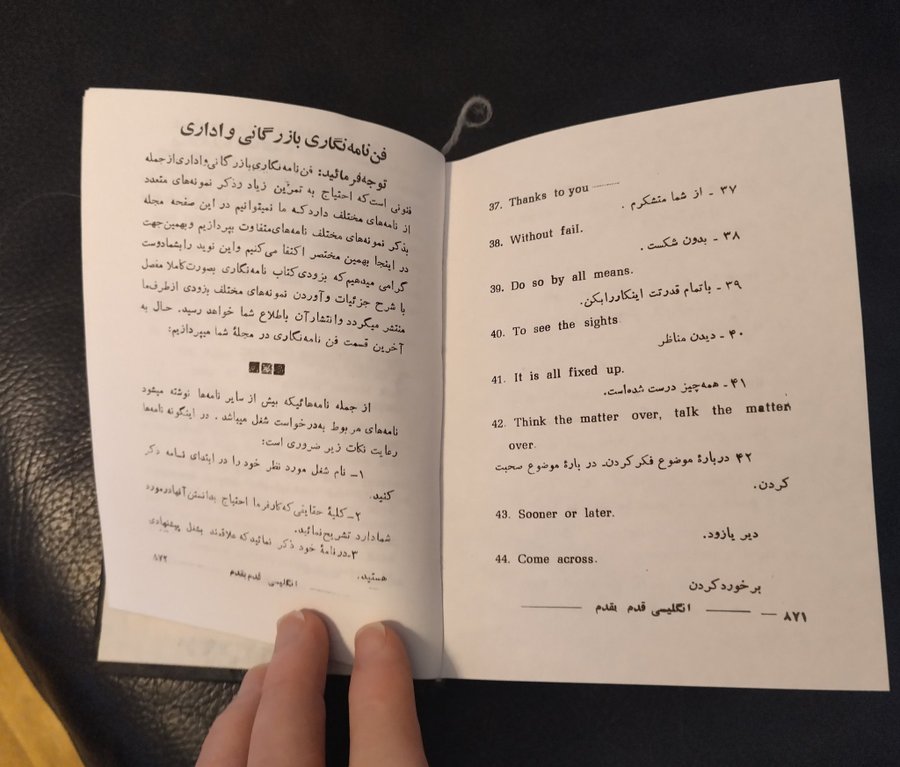 37. Thanks to you ........
۳۷ - از شما متشکرم .
38. Without fail.
۳۸ - بدون شکست .
39. Do so by all means.
۳۹ - باتمام قدرتت اینکاررابکن.
40. To see the sights
۴۰ - دیدن مناظر
41. It is all fixed up.
۴۱ - همه‌چیز درست شده‌است.
42. Think the matter over, talk the matter
over.
۴۲ دربارهٔ موضوع فکرکردن- در بارهٔ موضوع صحبت
کردن.
43. Sooner or later.
دیر یازود.
44. Come across.
برخوردکردن
۸۷۱ — انگلیسی قدم بقدم
فن نامه‌نگاری بازرگانی و اداری
توجه‌فرمائید: فن نامه‌نگاری‌بازرگانی‌واداری‌ازجمله
فنونی است‌که احتیاج به تمرین زیاد وذکر نمونه‌های متعدد
از نامه‌های مختلف داردکه ما نمیتوانیم در این صفحه مجله
بذکر نمونه‌های مختلف نامه‌های‌متفاوت بپردازیم و بهمین‌جهت
در اینجا بهمین مختصر اکتفا می‌کنیم واین نوید رابشمادوست
گرامی میدهیم‌که بزودی‌کتاب نامه‌نگاری بصورت‌کاملا مفصل
با شرح جزئیات وآوردن نمونه‌های مختلف بزودی ازطرف‌ما
منتشر میگردد وانتشارآن باطلاع شما خواهد رسید. حال به
آخرین قسمت فن نامه‌نگاری در مجلهٔ شما میپردازیم:
از جمله نامه‌هائیکه بیش از سایر نامه‌ها نوشته میشود
نامه‌های مربوط به‌درخواست شغل میباشد . در اینگونه نامه‌ها
رعایت نکات زیر ضروری است:
۱- نام شغل مورد نظر خود را در ابتدای نامه ذکر
کنید.
۲- کلیهٔ حقایقی‌که‌کارفرما احتیاج بدانستن‌آنهادرمورد
شمادارد تشریح‌نمائید.
۳-درنامهٔ خود ذکر نمائیدکه علاقمند بشغل پیشنهادی
هستید.
انگلیسی قدم بقدم ۸۷۲